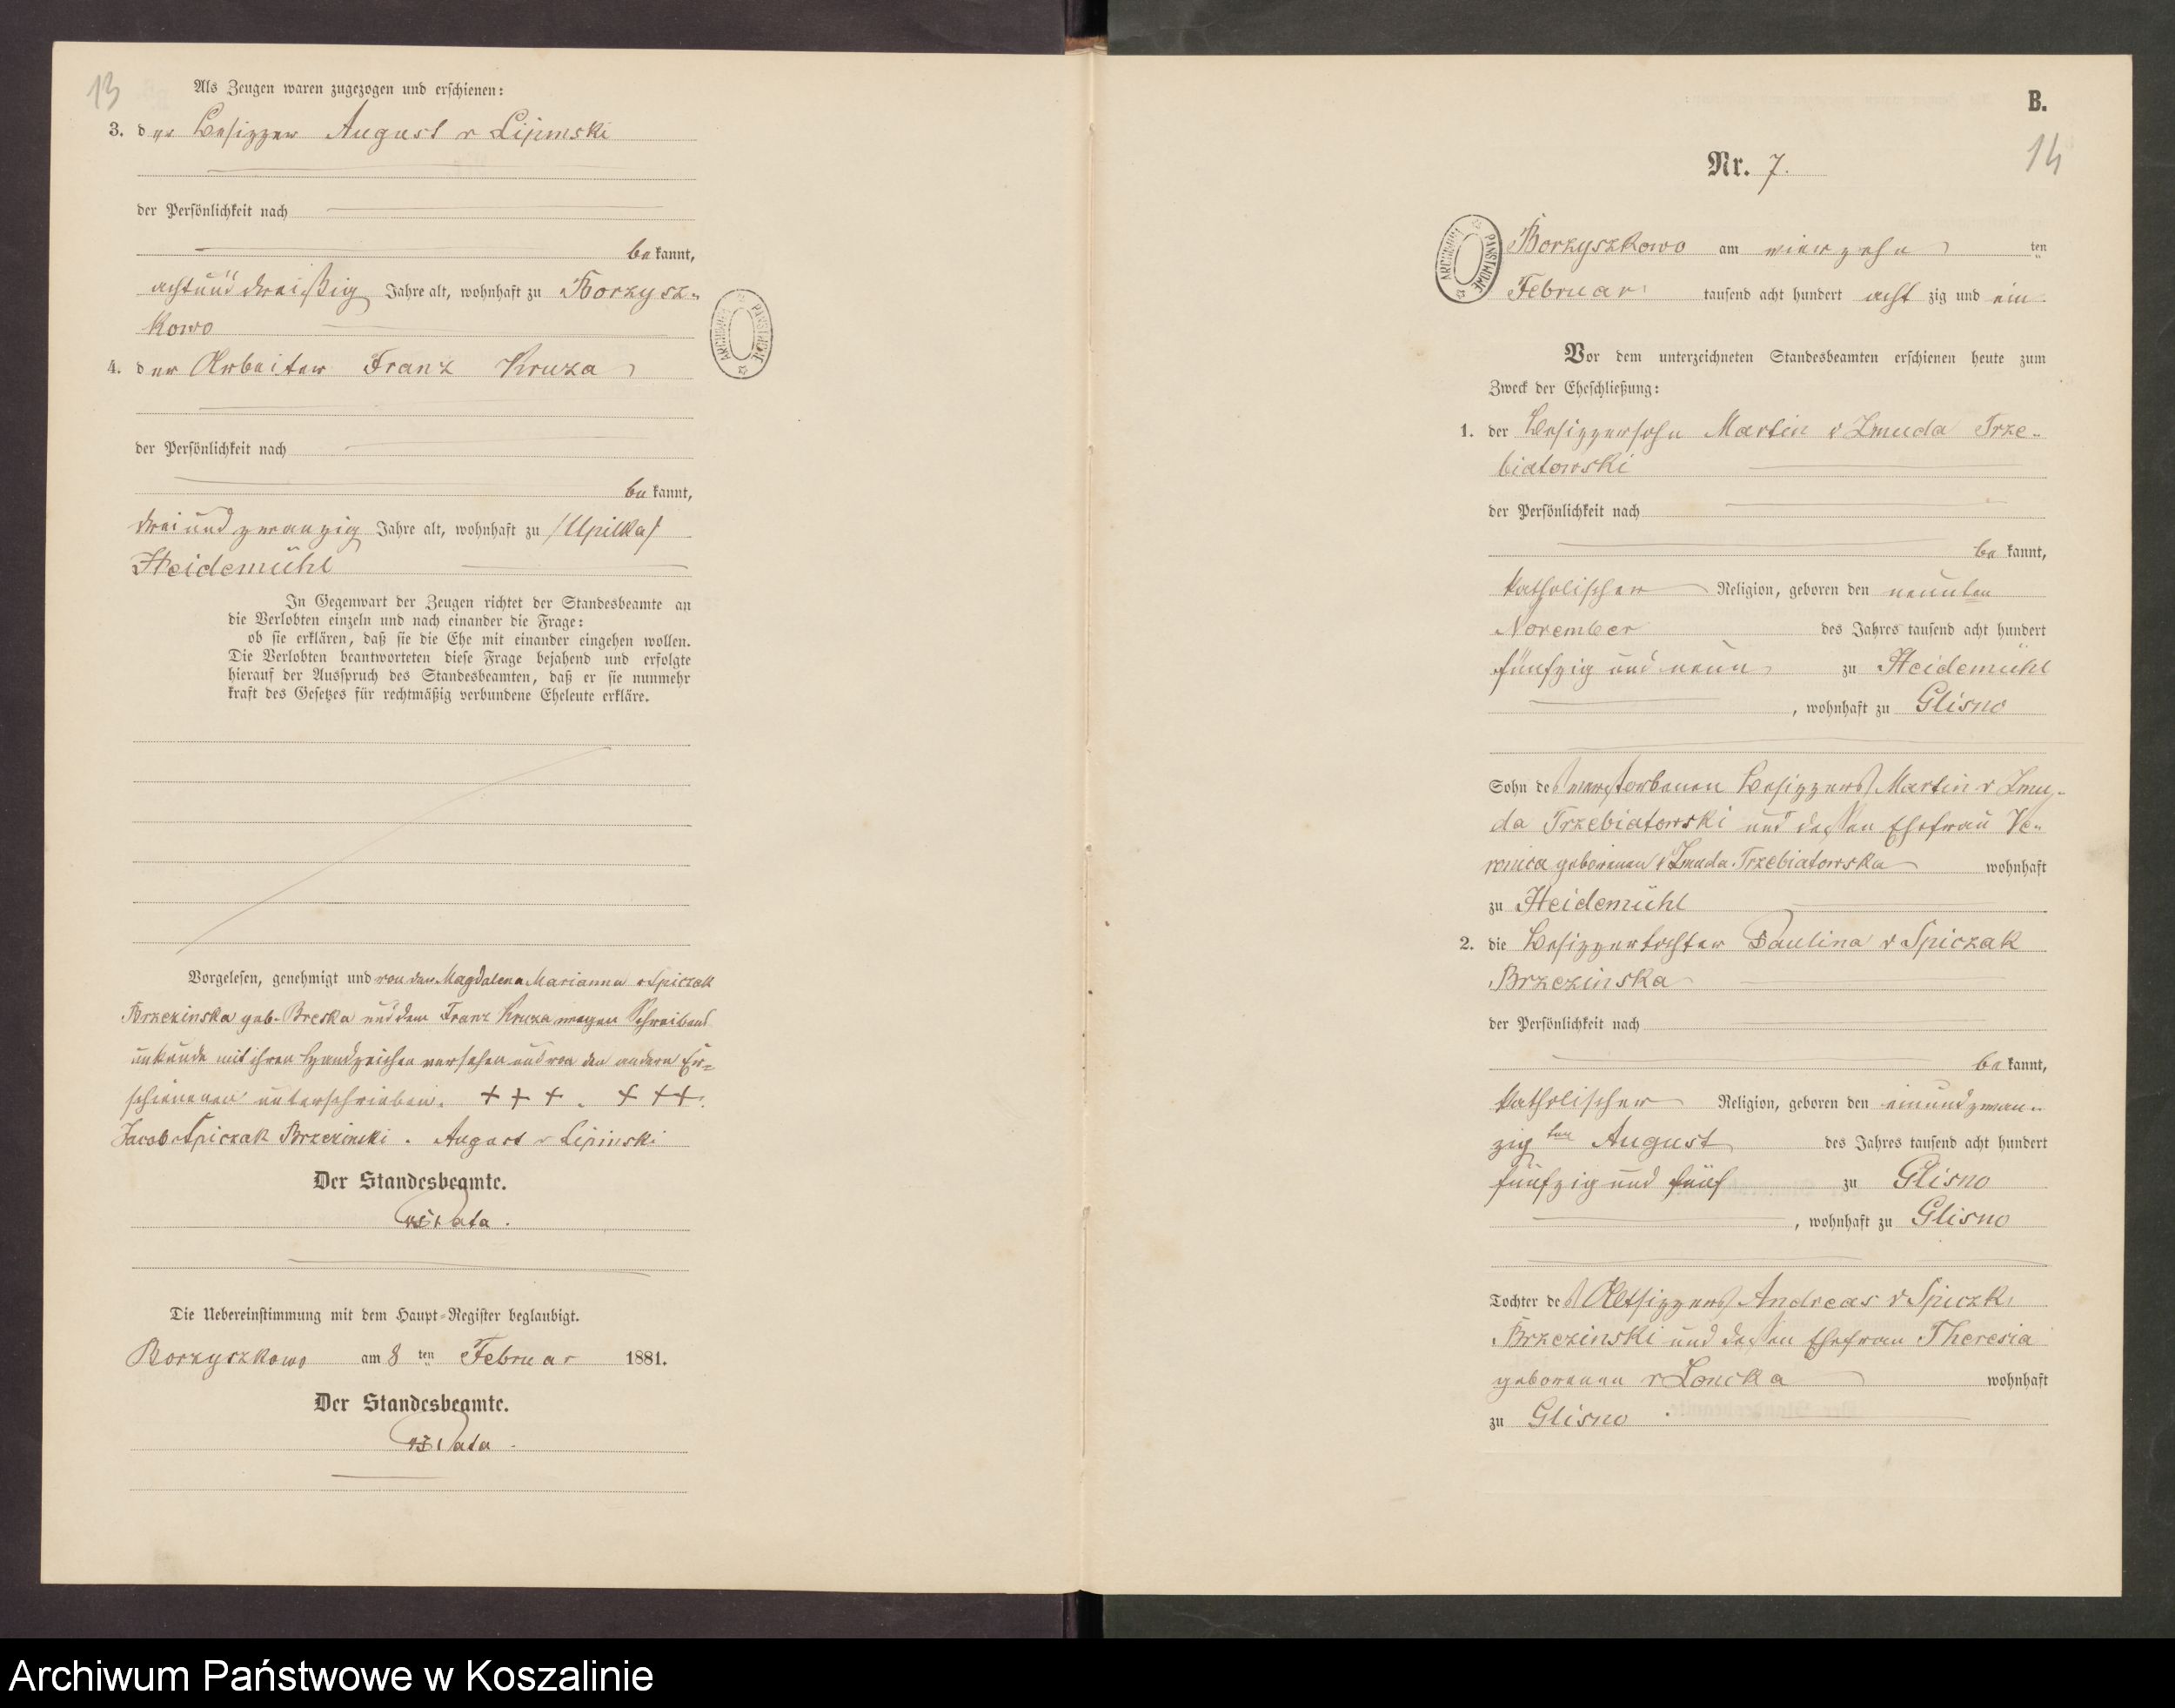 13
Als Zeugen waren zugezogen und erschienen:
3. der Besitzer August v Lipinski
der Persönlichkeit nach
bekannt,
achtunddreißig Jahre alt, wohnhaft zu Borzysz-
kowo
4. der Arbeiter Franz Kruza
der Persönlichkeit nach
bekannt,
dreiundzwanzig Jahre alt, wohnhaft zu /Upilka/
Heidemühl
In Gegenwart der Zeugen richtet der Standesbeamte an
die Verlobten einzeln und nach einander die Frage:
ob sie erklären, daß sie die Ehe mit einander eingehen wollen.
Die Verlobten beantworteten diese Frage bejahend und erfolgte
hierauf der Ausspruch des Standesbeamten, daß er sie nunmehr
kraft des Gesetzes für rechtmäßig verbundene Eheleute erkläre.
Vorgelesen, genehmigt und von der Magdalena Marianna v Spiczak
Brzezinska geb. Breska und dem Franz Kruza wegen Schreibens
unkunde mit ihren Handzeichen versehen und von den andern Er-
schienenen unterschrieben. + + + . + + +.
Jacob v Spiczak Brzezinski . August v Lipinski
Der Standesbeamte.
Die Uebereinstimmung mit dem Haupt-Register beglaubigt.
Borzyszkowo am 8 ten Februar 1881.
Der Standesbeamte.
B.
14
Nr. 7.
Borzyszkowo am vierzehn ten
Februar tausend acht hundert acht zig und ein
Vor dem unterzeichneten Standesbeamten erschienen heute zum
Zweck der Eheschließung:
1. der Besitzersohn Martin v Zmuda Trze-
biatowski
der Persönlichkeit nach
bekannt,
katholischer Religion, geboren den neunten
November des Jahres tausend acht hundert
fünfzig und neun zu Heidemühl
, wohnhaft zu Glisno
Sohn des verstorbenen Besitzers Martin v Zmu-
da Trzebiatowski und dessen Ehefrau Ve-
ronica geborenen v Zmuda Trzebiatowska wohnhaft
zu Heidemühl
2. die Besitzertochter Paulina v Spiczak
Brzezinska
der Persönlichkeit nach
bekannt,
katholischer Religion, geboren den einundzwan-
zig ten August des Jahres tausend acht hundert
fünfzig und fünf zu Glisno
, wohnhaft zu Glisno
Tochter des Altsitzers Andreas v Spiczk
Brzezinski und dessen Ehefrau Theresia
geborenen v Loncka wohnhaft
zu Glisno
ARCHIWUM PAŃSTWOWE
ARCHIWUM PAŃSTWOWE
Archiwum Państwowe w Koszalinie